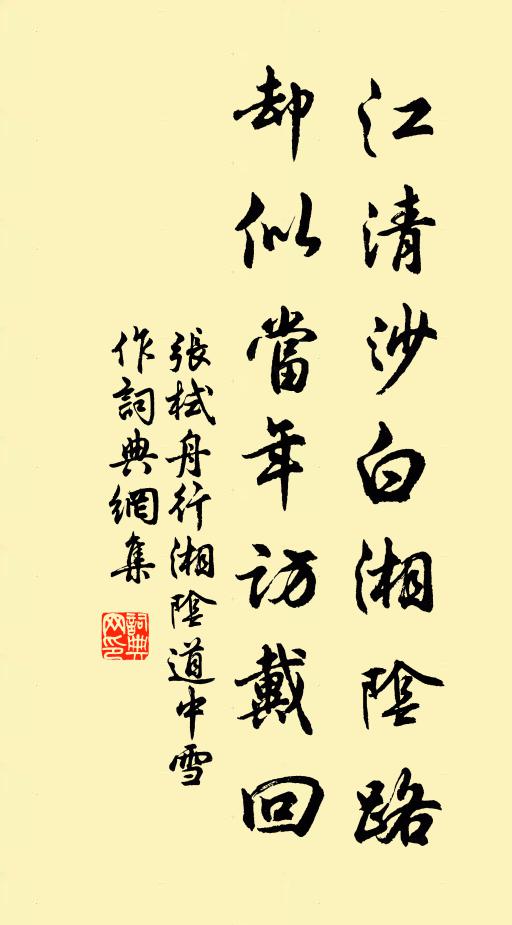 江清沙白湘陰路
却似當年訪戴回
張栻舟行湘陰道中雪
作詞典網集
詞典網印